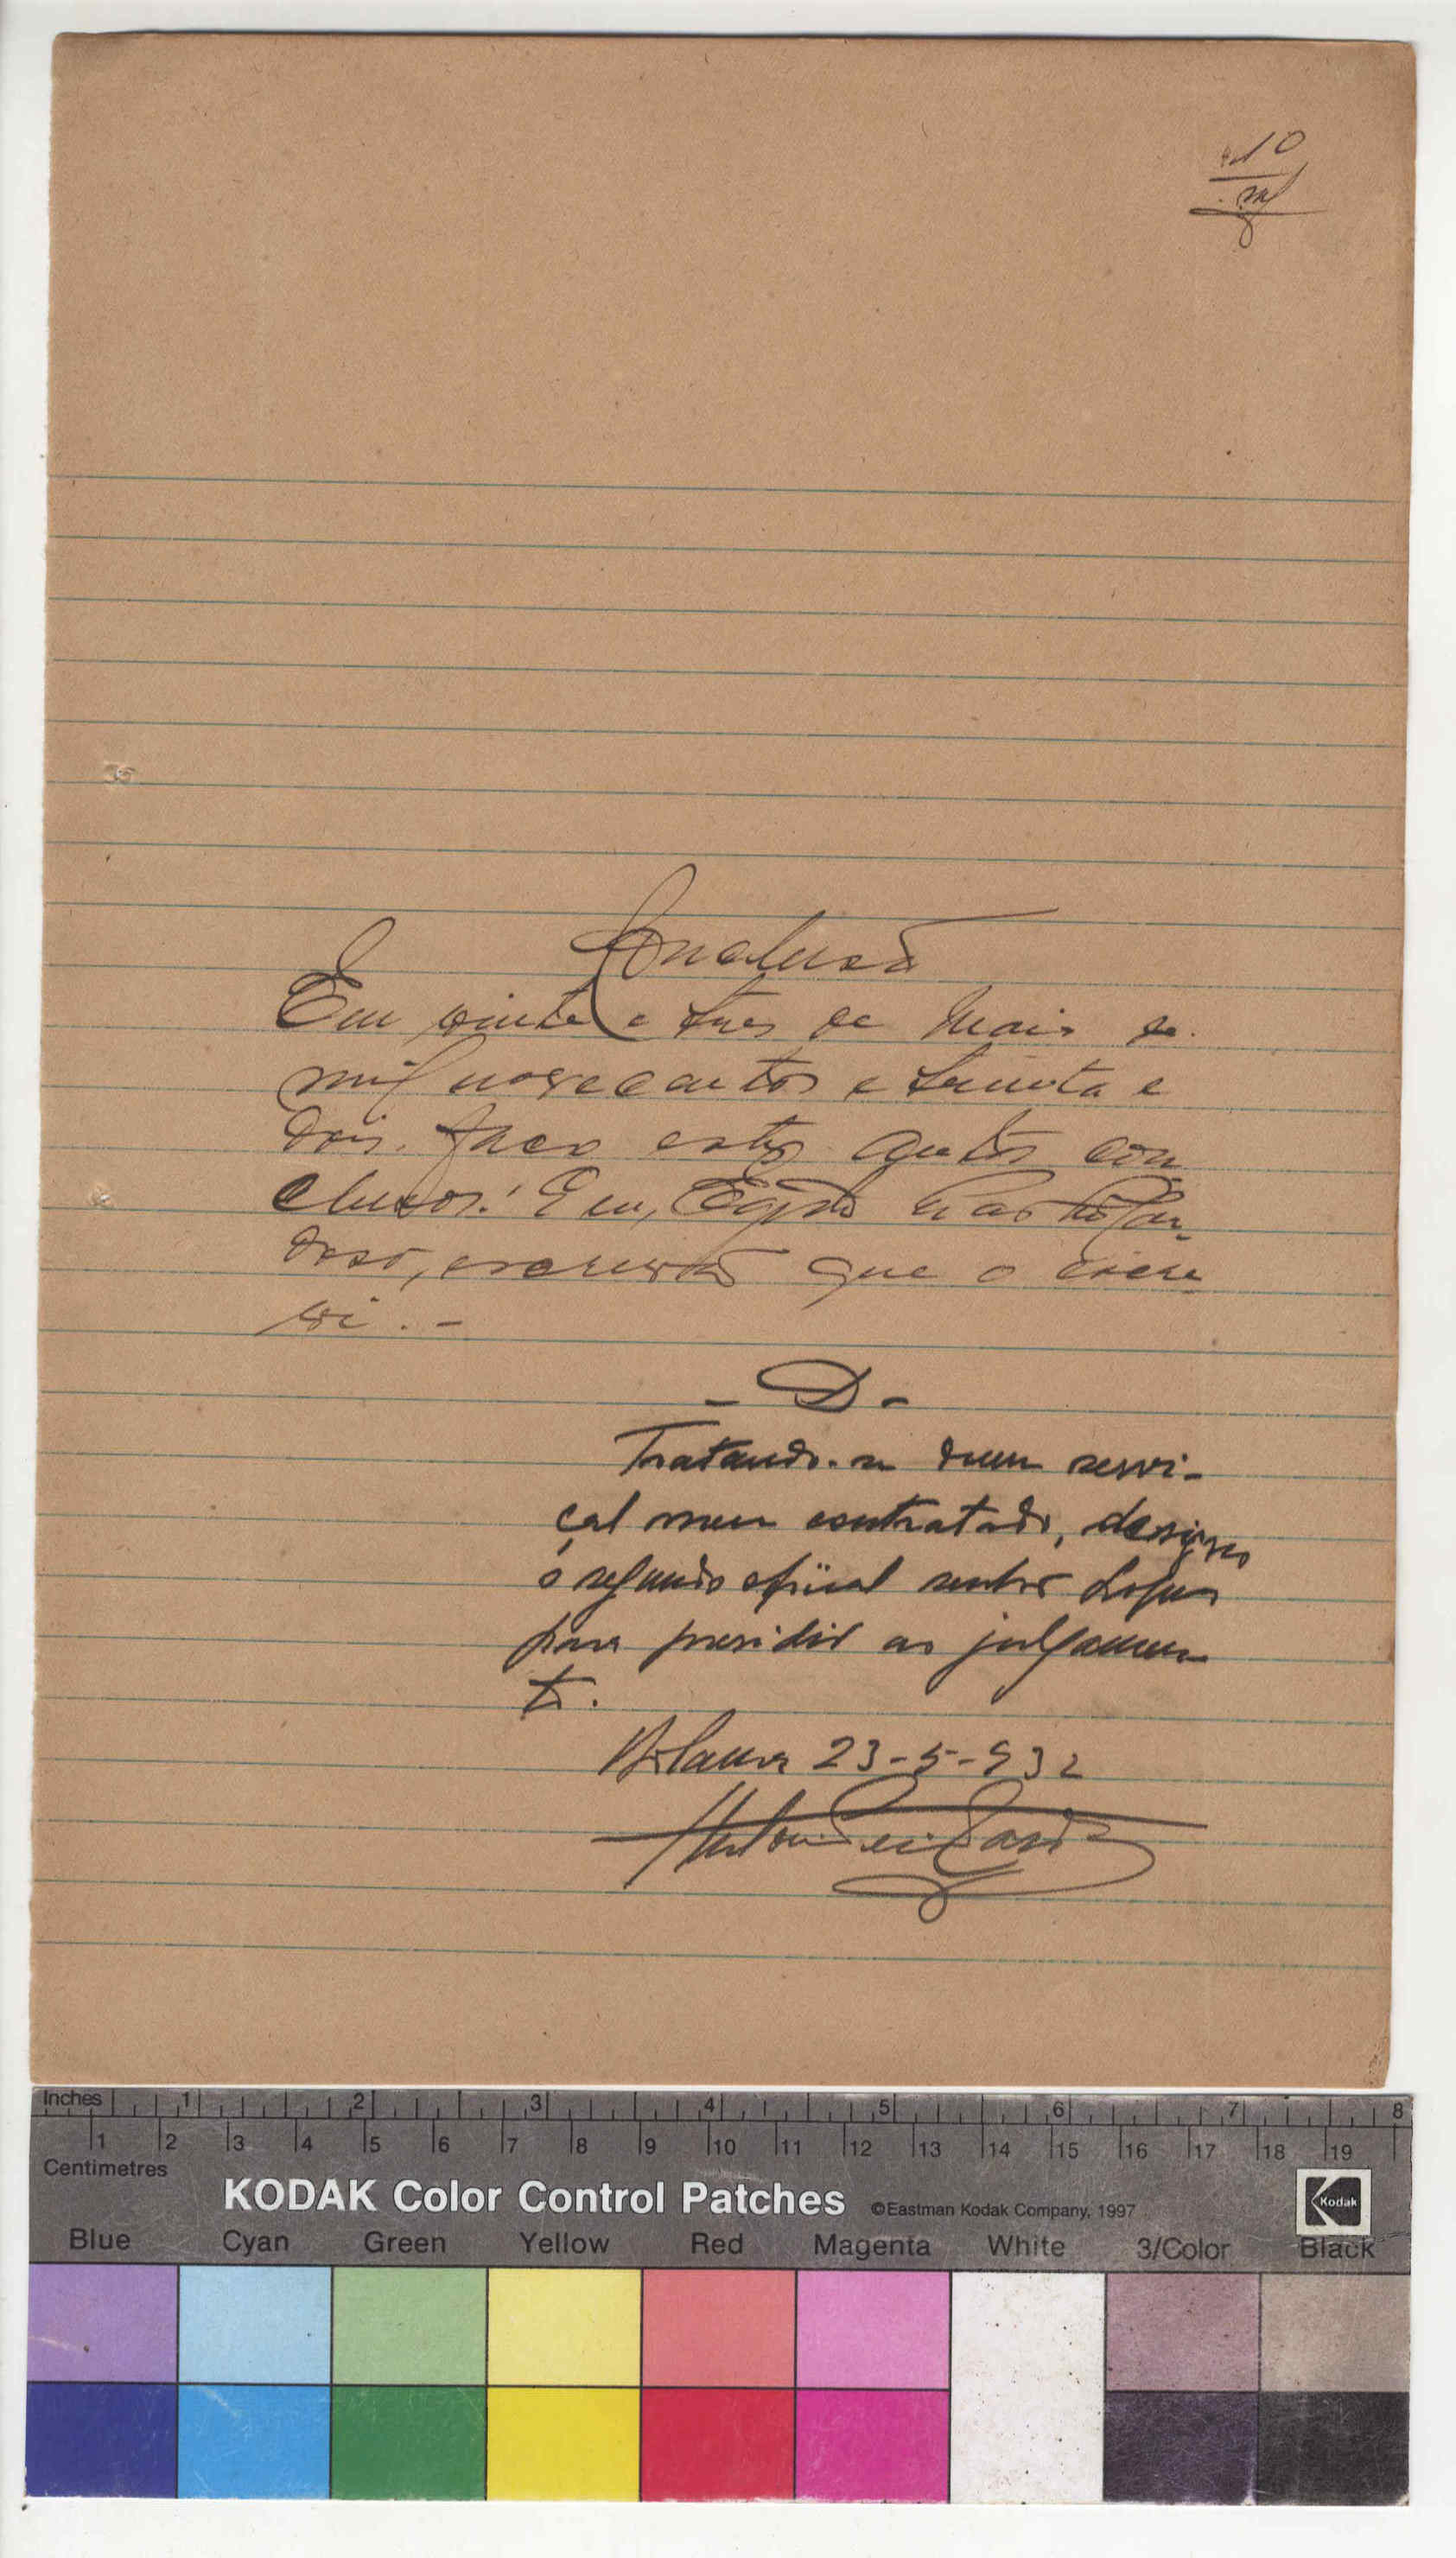 10
Conclusão
Em vinte e tres de Maio de
mil novecentos e trinta e
dois. faco estes autos con
clusos. Eu, Egidio
doso, escrivão que o escre
vi. -
- D -
Tratando-se dum servi-
çal meu contratado, designo
o segundo oficial senhor Lopes
para presidir ao julgamen
to.
Bolama 23-5-932
Inches 1 2 3 4 5 6 7 8
1 2 3 4 5 6 7 8 9 10 11 12 13 14 15 16 17 18 19
Centimetres
KODAK Color Control Patches ©Eastman Kodak Company, 1997 Kodak
Blue Cyan Green Yellow Red Magenta White 3/Color Black